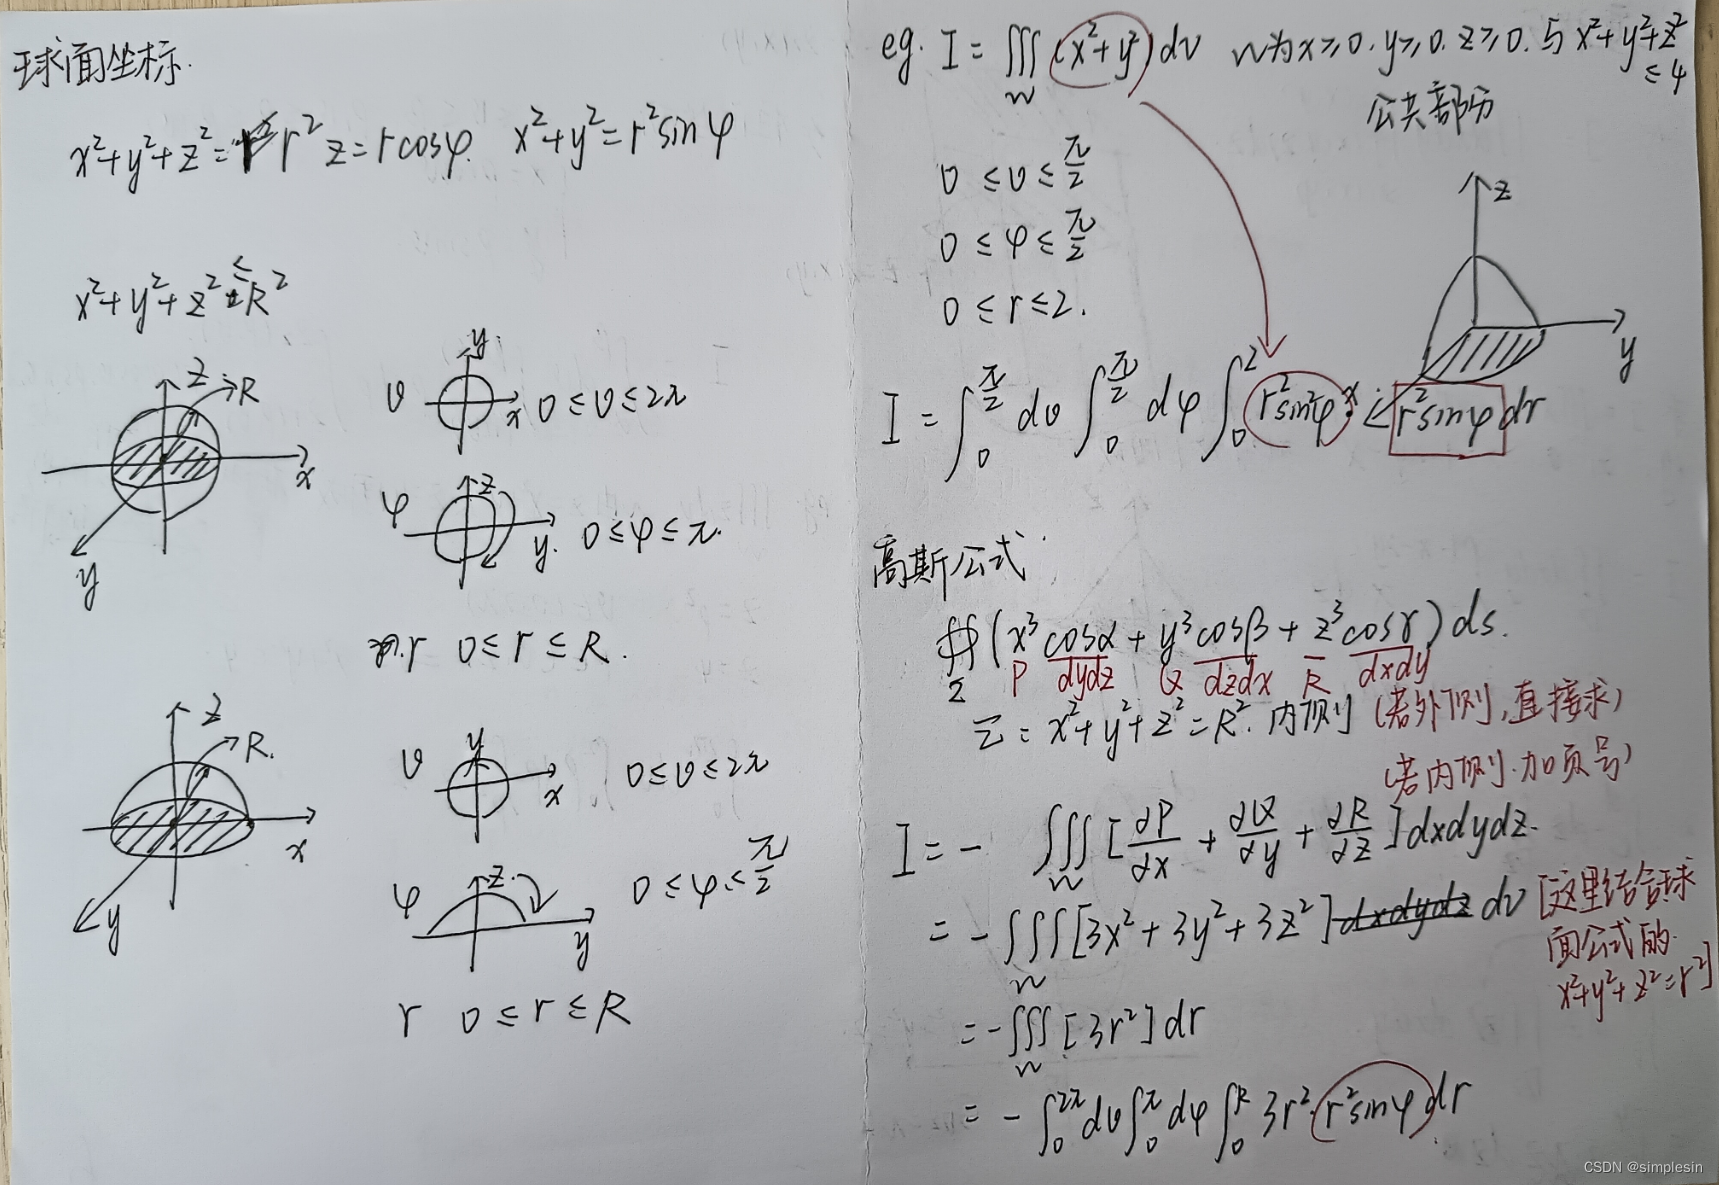 球面坐标.
x²+y²+z²=r² z=rcosφ. x²+y²=r²sinφ
x²+y²+z²≤R²
z
R
x
y
θ
y
x
0≤θ≤2π
φ
z
y.
0≤φ≤π.
r 0≤r≤R.
z
R.
x
y
θ
y
x
0≤θ≤2π
φ
z
y
0≤φ≤π/2
r 0≤r≤R
eg. I=∭(x²+y²)dv w为x≥0.y≥0.z≥0.与x²+y²+z²≤4
w
公共部分
0≤θ≤π/2
0≤φ≤π/2
0≤r≤2.
z
y
x
I=∫₀^(π/2)dθ∫₀^(π/2)dφ∫₀²r²sin²φ·r²sinφdr
高斯公式
∯(x³cosα+y³cosβ+z³cosγ)ds.
Σ P dydz Q dzdx R dxdy
Σ=x²+y²+z²=R².内侧(若外侧,直接求)
(若内侧.加负号)
I=-∭[∂P/∂x+∂Q/∂y+∂R/∂z]dxdydz.
w
=-∭[3x²+3y²+3z²]dxdydz dv [这里结合球
w
面公式的
x²+y²+z²=r²]
=-∭[3r²]dr
w
=-∫₀^(2π)dθ∫₀^πdφ∫₀^R3r²·r²sinφdr
CSDN @simplesin